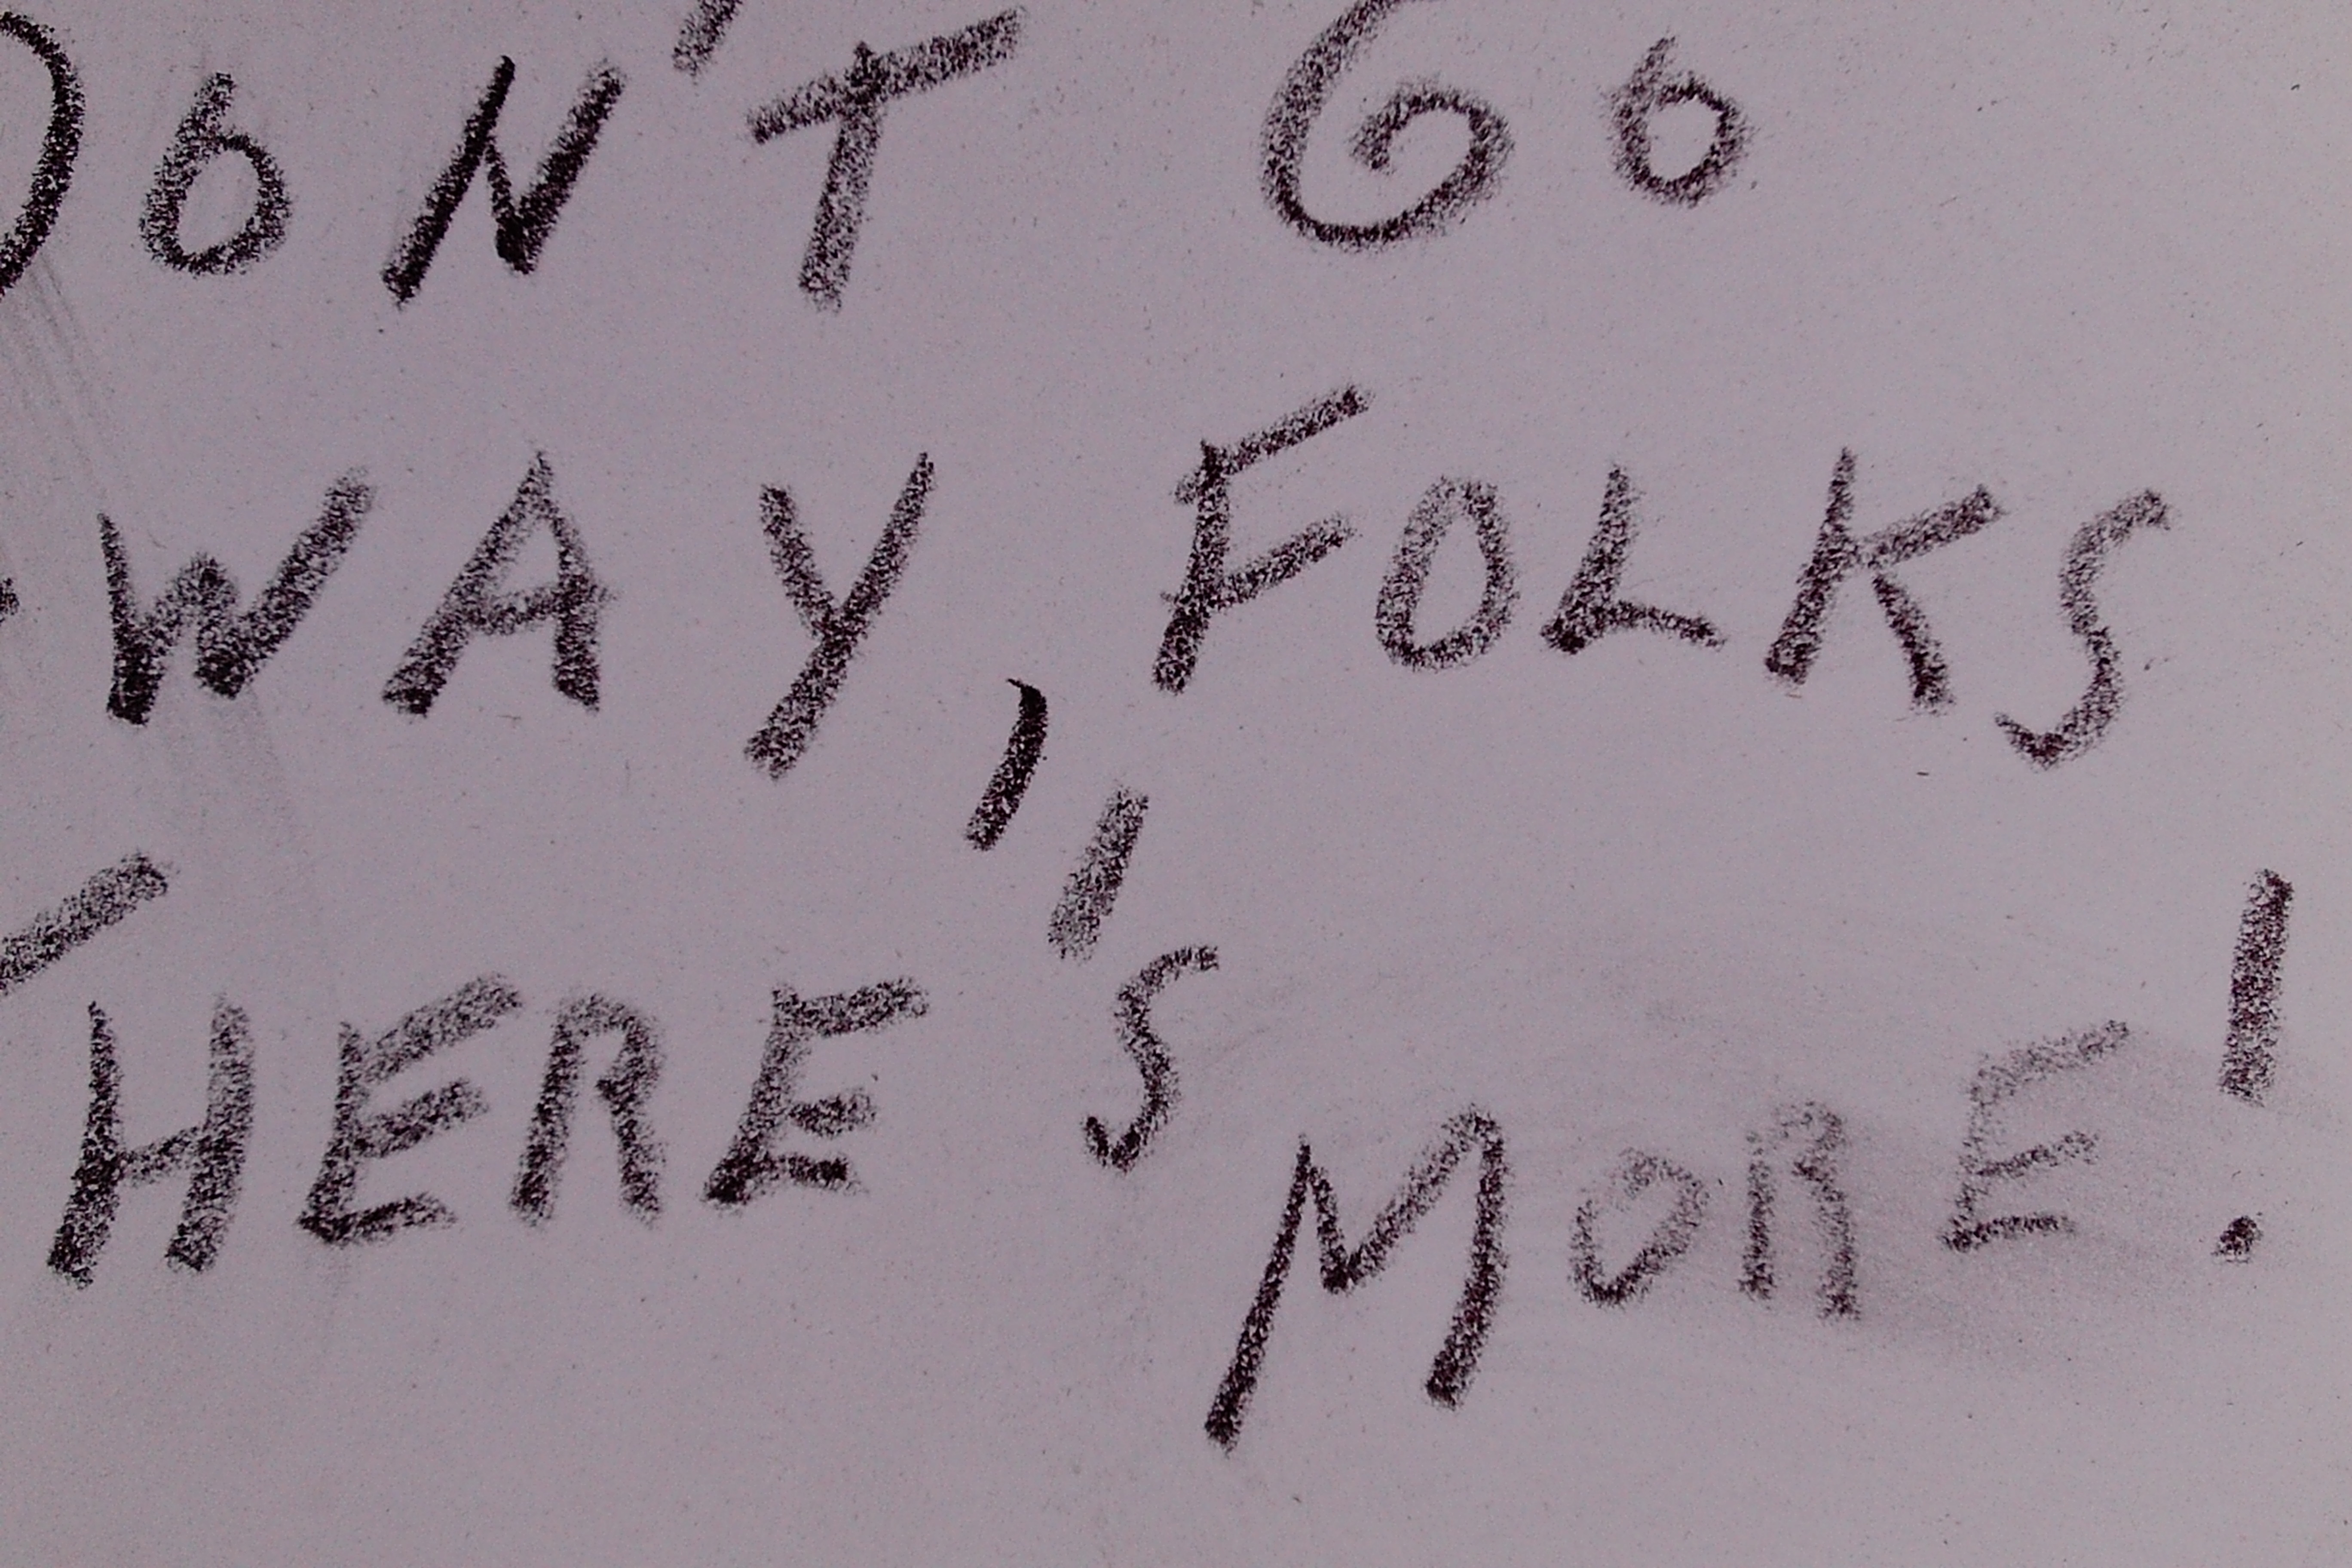 DON'T GO
AWAY, FOLKS
THERE'S MORE!